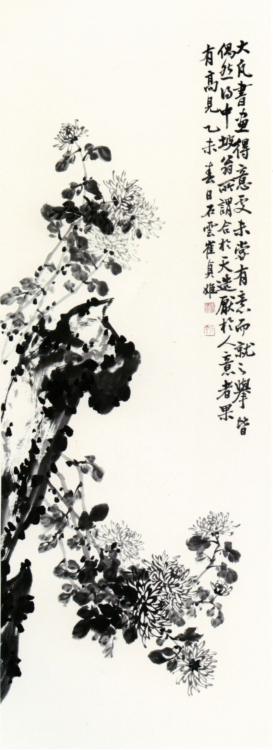 大凡書畫得意處未嘗有意而就之擧皆
偶然得中坡翁所謂合於天造厭於人意者果
有高見乙未春日石雲崔貞姬